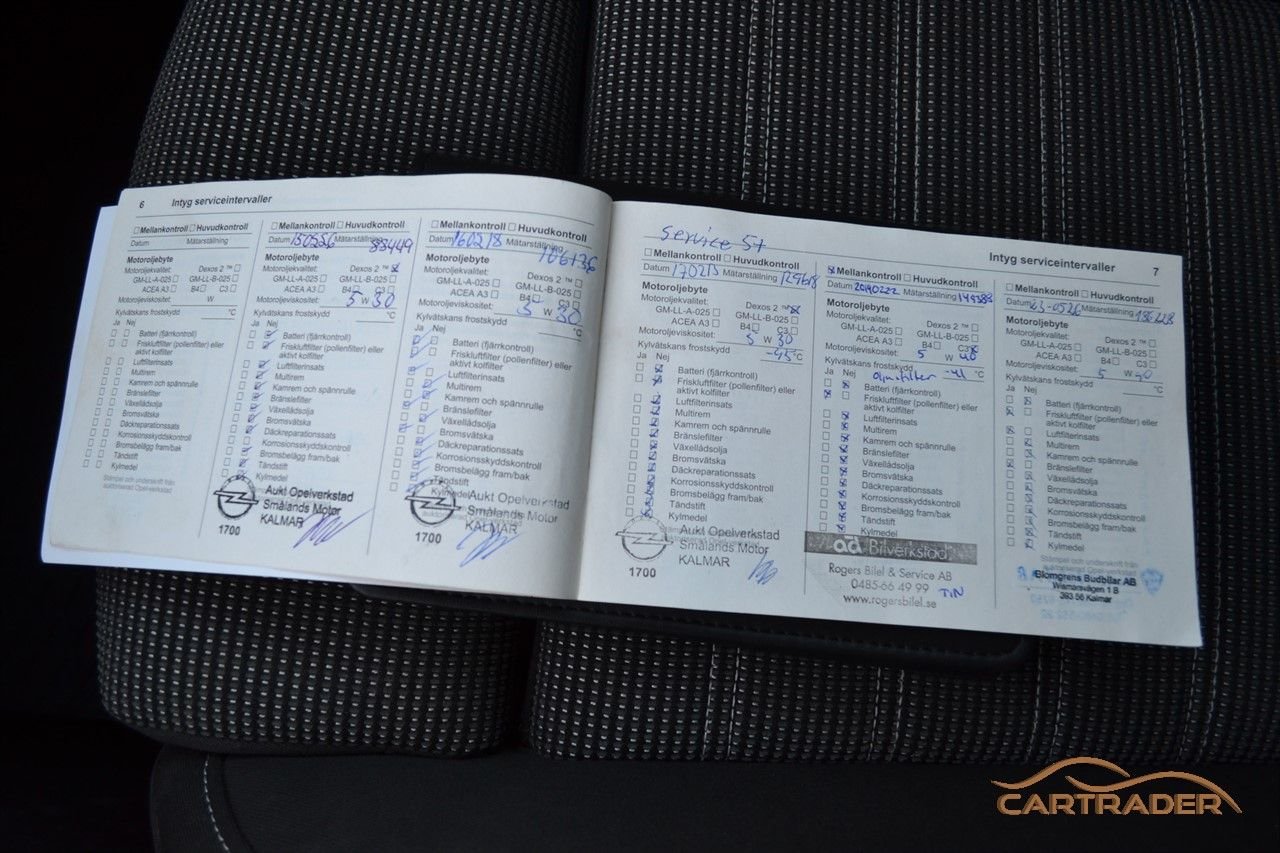 6 Intyg serviceintervaller
Mellankontroll Huvudkontroll
Datum Mätarställning
Motoroljebyte
Motoroljekvalitet: Dexos 2 ™
GM-LL-A-025 GM-LL-B-025
ACEA A3 B4 C3
Motoroljeviskositet: W
Kylvätskans frostskydd °C
Ja Nej
Batteri (fjärrkontroll)
Friskluftfilter (pollenfilter) eller
aktivt kolfilter
Luftfilterinsats
Multirem
Kamrem och spännrulle
Bränslefilter
Växellådsolja
Bromsvätska
Däckreparationssats
Korrosionsskyddskontroll
Bromsbelägg fram/bak
Tändstift
Kylmedel
Stämpel och underskrift från
auktoriserad Opel-verkstad
Mellankontroll Huvudkontroll
Datum 150526 Mätarställning 83449
Motoroljebyte
Motoroljekvalitet: Dexos 2 ™
GM-LL-A-025 GM-LL-B-025
ACEA A3 B4 C3
Motoroljeviskositet: 5 W 30
Kylvätskans frostskydd °C
Ja Nej
Batteri (fjärrkontroll)
Friskluftfilter (pollenfilter) eller
aktivt kolfilter
Luftfilterinsats
Multirem
Kamrem och spännrulle
Bränslefilter
Växellådsolja
Bromsvätska
Däckreparationssats
Korrosionsskyddskontroll
Bromsbelägg fram/bak
Tändstift
Kylmedel
Aukt Opelverkstad
Smålands Motor
KALMAR
1700
Mellankontroll Huvudkontroll
Datum 160218 Mätarställning 106136
Motoroljebyte
Motoroljekvalitet: Dexos 2 ™
GM-LL-A-025 GM-LL-B-025
ACEA A3 B4 C3
Motoroljeviskositet: 5 W 30
Kylvätskans frostskydd °C
Ja Nej
Batteri (fjärrkontroll)
Friskluftfilter (pollenfilter) eller
aktivt kolfilter
Luftfilterinsats
Multirem
Kamrem och spännrulle
Bränslefilter
Växellådsolja
Bromsvätska
Däckreparationssats
Korrosionsskyddskontroll
Bromsbelägg fram/bak
Tändstift
Kylmedel
Aukt Opelverkstad
Smålands Motor
KALMAR
1700
Service 57
Intyg serviceintervaller 7
Mellankontroll Huvudkontroll
Datum Mätarställning
Motoroljebyte
Motoroljekvalitet: Dexos 2 ™
GM-LL-A-025 GM-LL-B-025
ACEA A3 B4 C3
Motoroljeviskositet: 5 W 30
Kylvätskans frostskydd °C
Ja Nej
Batteri (fjärrkontroll)
Friskluftfilter (pollenfilter) eller
aktivt kolfilter
Luftfilterinsats
Multirem
Kamrem och spännrulle
Bränslefilter
Växellådsolja
Bromsvätska
Däckreparationssats
Korrosionsskyddskontroll
Bromsbelägg fram/bak
Tändstift
Kylmedel
Aukt Opelverkstad
Smålands Motor
KALMAR
1700
Mellankontroll Huvudkontroll
Datum 20190222 Mätarställning
Motoroljebyte
Motoroljekvalitet: Dexos 2 ™
GM-LL-A-025 GM-LL-B-025
ACEA A3 B4 C3
Motoroljeviskositet: 5 W 40
Kylvätskans frostskydd -41 °C
Ja Nej
Batteri (fjärrkontroll)
Friskluftfilter (pollenfilter) eller
aktivt kolfilter
Luftfilterinsats
Multirem
Kamrem och spännrulle
Bränslefilter
Växellådsolja
Bromsvätska
Däckreparationssats
Korrosionsskyddskontroll
Bromsbelägg fram/bak
Tändstift
Kylmedel
ad Bilverkstad
Rogers Bilel & Service AB
0485-66 49 99
www.rogersbilel.se
Mellankontroll Huvudkontroll
Datum Mätarställning
Motoroljebyte
Motoroljekvalitet: Dexos 2 ™
GM-LL-A-025 GM-LL-B-025
ACEA A3 B4 C3
Motoroljeviskositet: 5 W
Kylvätskans frostskydd °C
Ja Nej
Batteri (fjärrkontroll)
Friskluftfilter (pollenfilter) eller
aktivt kolfilter
Luftfilterinsats
Multirem
Kamrem och spännrulle
Bränslefilter
Växellådsolja
Bromsvätska
Däckreparationssats
Korrosionsskyddskontroll
Bromsbelägg fram/bak
Tändstift
Kylmedel
Stämpel och underskrift från
auktoriserad Opel-verkstad
Blomgrens Budbilar AB
Wismarsvägen 1 B
393 56 Kalmar
CARTRADER